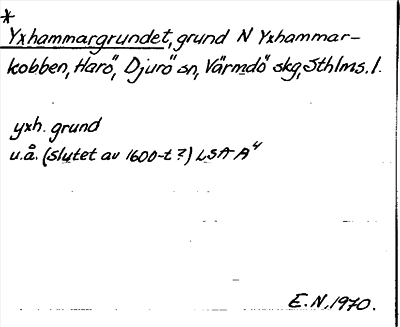 *
Yxhammargrundet, grund N Yxhammar-
kobben, Harö, Djurö sn, Värmdö skg, Sthlms. l.
yxh. grund
u.å. (slutet av 1600-t?) LSA A4
E. N. 1970.